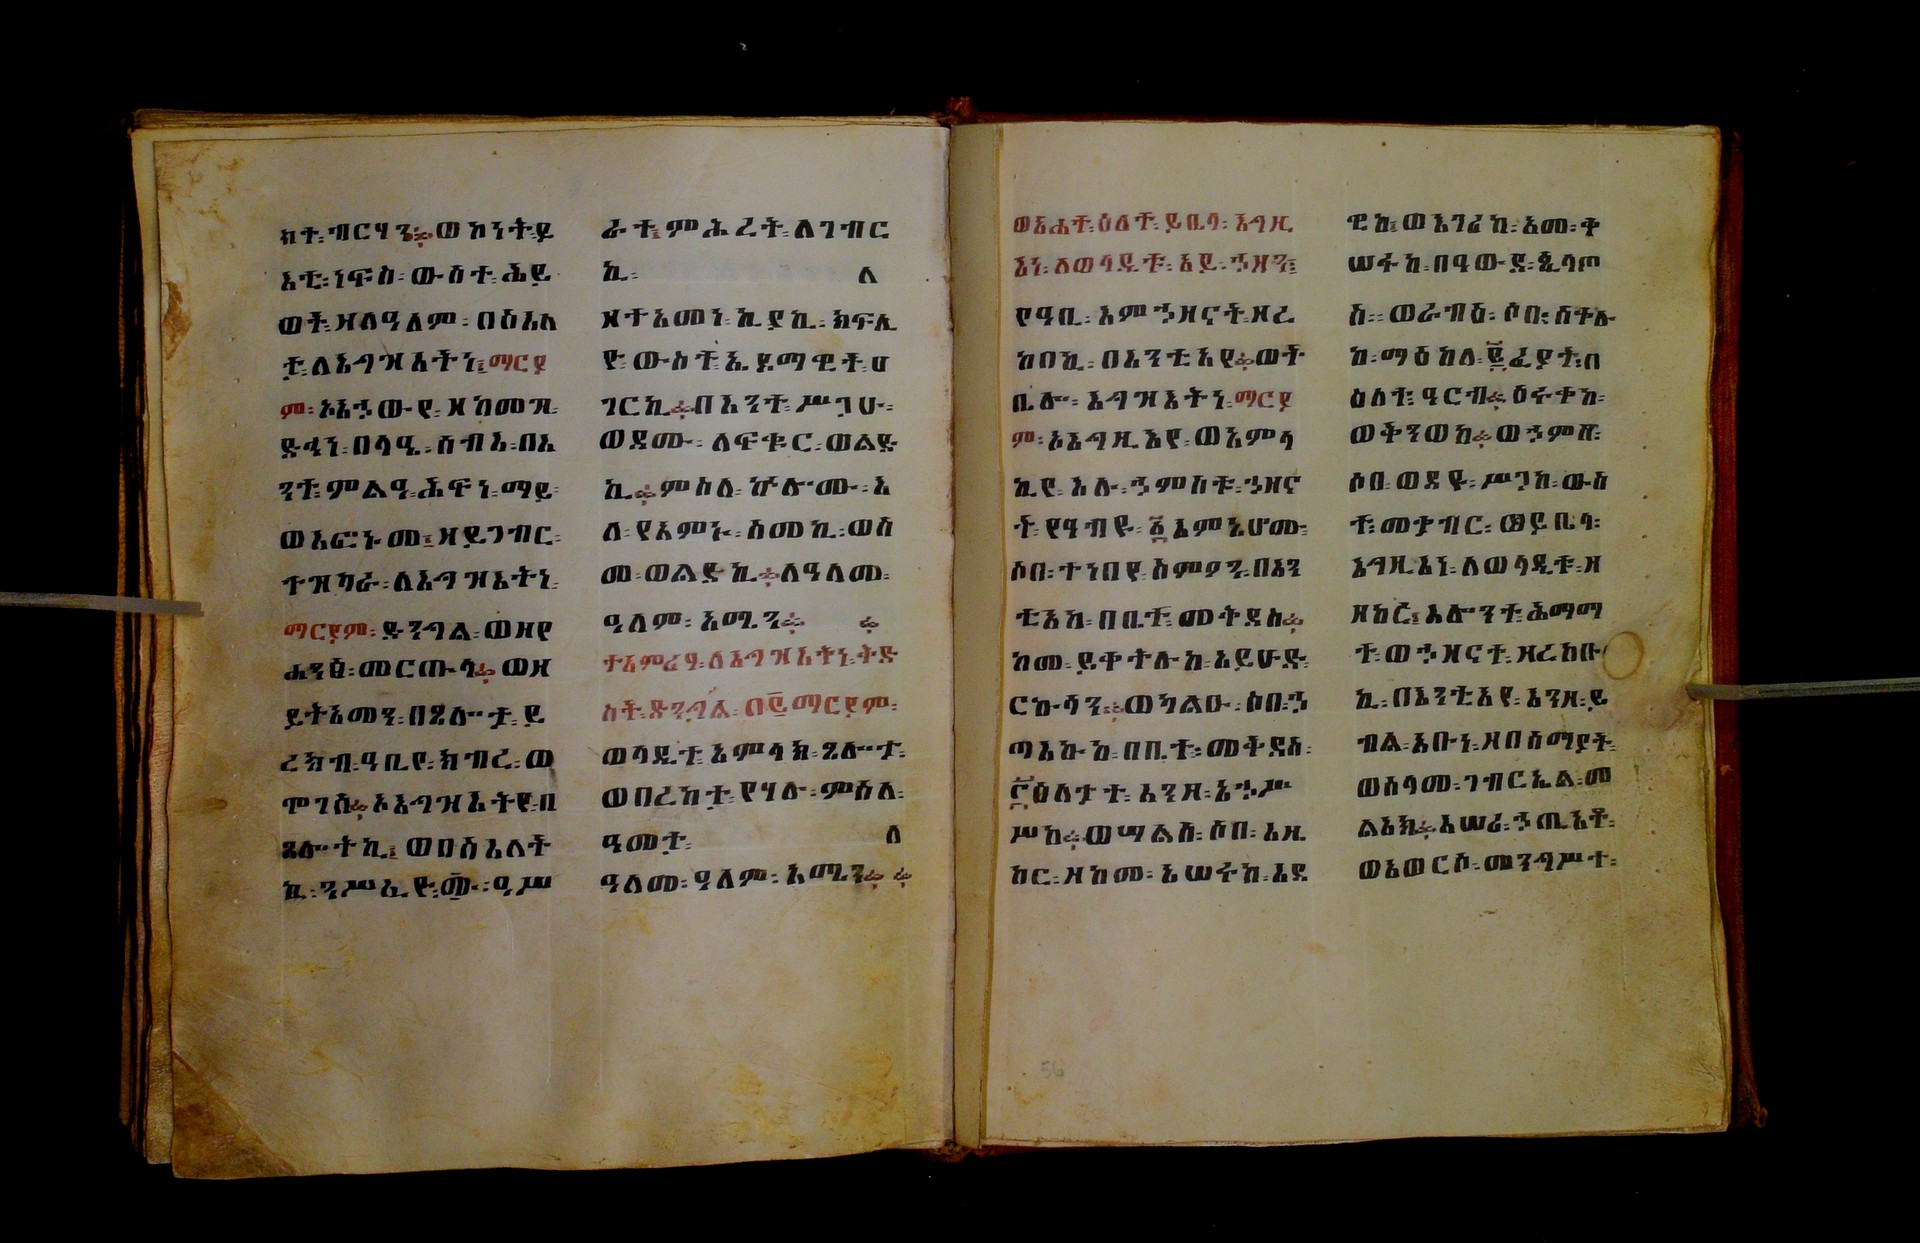 ክተ፡ ብርሃን፨ ወኮነት፡ ይ
እቲ፡ ነፍስ፡ ውስተ፡ ሕይ
ወት፡ ዘለዓለም፡ በስእለ
ታ፡ ለእግዝእትነ፤ ማርያ
ም፡ ኦአኀውየ፡ ዘከመዝ፡
ድኅነ፡ በሳዒ፡ ሰብእ፡ በአ
ንተ፡ ምልዓ፡ ሕፍነ፡ ማይ፡
ወአፎኑ፡ መ፤ ዘይገብር፡
ተዝካራ፡ ለእግዝእትነ፡
ማርያም፡ ድንግል፡ ወዘየ
ሐንፅ፡ መርጡላ፨ ወዘ
ይትአመን፡ በጸሎታ፡ ይ
ረክብ፡ ዓቢየ፡ ክብረ፡ ወ
ሞገሰ፨ ኦእግዝእትየ፡ በ
ጸሎትኪ፤ ወበስእለት
ኪ፡ ንሥኢዮ፡ ዓሥ
ራተ፤ ምሕረት፡ ለገብር
ኪ፡ ለ
ዘተአመነ፡ ኪያኪ፡ ክፍሊ
ዮ፡ ውስተ፡ ኢየማዊት፡ ሀ
ገርኪ፨ በእንተ፡ ሥጋሁ፡
ወደሙ፡ ለፍቁር፡ ወልድ
ኪ፨ ምስለ፡ ኵሎሙ፡ እ
ለ፡ የአምኑ፡ ስመኪ፡ ወስ
መ፡ ወልድኪ፨ ለዓለመ፡
ዓለም፡ አሜን፨ ፨
ተአምሪሃ፡ ለእግዝእትነ፡ ቅድ
ስት፡ ድንግል፡ በ፪ ማርያም፡
ወላዲተ፡ አምላክ፡ ጸሎታ፡
ወበረከታ፡ የሃሉ፡ ምስለ፡
ዓመታ፡ ለ
ዓለመ፡ ዓለም፡ አሜን፨ ፨
ወአሐተ፡ ዕለተ፡ ይቤላ፡ እግዚ
እነ፡ ለወላዲቱ፡ አይ፡ ኀዘን፤
የዓቢ፡ እምኀዘናት፡ ዘረ
ከበኪ፡ በእንቲአየ፨ ወት
ቤሎ፡ እግዝእትነ፡ ማርያ
ም፡ ኦእግዚእየ፡ ወአምላ
ኪየ፡ እሉ፡ ኀምስቱ፡ ኀዘና
ት፡ የዓብዩ፡ ፩ እምኔሆሙ፡
ሶበ፡ ተነበየ፡ ስምዖን፡ በእን
ቲአከ፡ በቤተ፡ መቅደስ፨
ከመ፡ ይቀትሉከ፡ አይሁድ፡
ርኩሳን፨ ወካልዑ፡ ሶበ፡ ኀ
ጣእኩከ፡ በቤተ፡ መቅደስ፡
፫ዕለታተ፡ እንዘ፡ አኀሥ
ሥከ፨ ወሣልስ፡ ሶበ፡ እዜ
ከር፡ ዘከመ፡ አሠሩከ፡ እደ
ዊከ፤ ወእገሪከ፡ እመ፡ ቀ
ሠፉከ፡ በዓውደ፡ ጲላጦ
ስ፡፡ ወራብዕ፡ ሶበ፡ ሰቀሉ
ከ፡ ማዕከለ፡ ፪ ፈያት፡ በ
ዕለተ፡ ዓርብ፨ ዕሩቀከ፡
ወቅንወከ፨ ወኀምስ፡
ሶበ፡ ወደዩ፡ ሥጋከ፡ ውስ
ተ፡ መቃብር፡ ወይቤላ፡
እግዚእነ፡ ለወላዲቱ፡ ዘ
ዘከረ፤ እሎንተ፡ ሕማማ
ተ፡ ወኀዘናተ፡ ዘረከቡ
ኪ፡ በእንቲአየ፡ እንዘ፡ ይ
ብል፡ አቡነ፡ ዘበሰማያት
ወሰላመ፡ ገብርኤል፡ መ
ልአክ፨ እሠሪ፡ ኀጢአቶ፡
ወአወርሶ፡ መንግሥተ፡
56